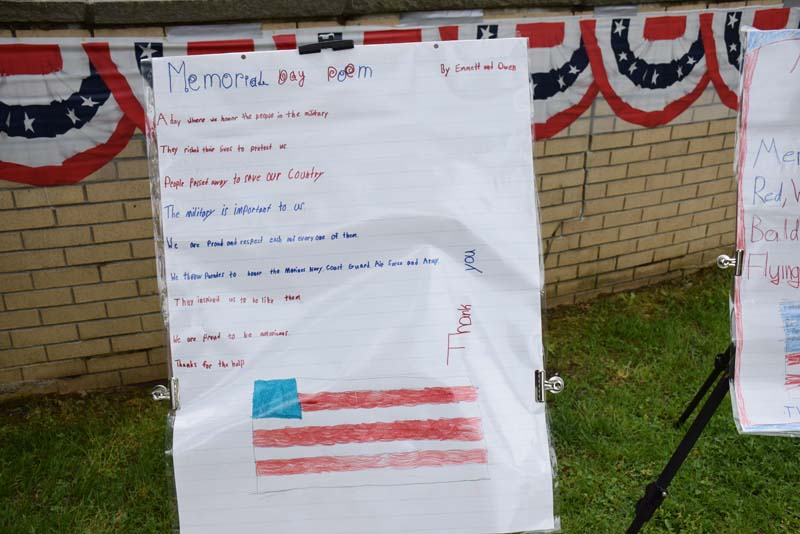 Memorial Day poem
By Emmett and Owen
A day where we honor the people in the military
They risked their lives to protect us
People passet away to save our Country
The military is important to us.
We are proud and respect each and every one of them.
We throw Parades to honor the Marines Navy Coast Guard Air Force and Army.
They inspired us to be like them
We are proud to be americans.
Thanks for the help
Thank you
Mem
Red, W
Bald
Flying